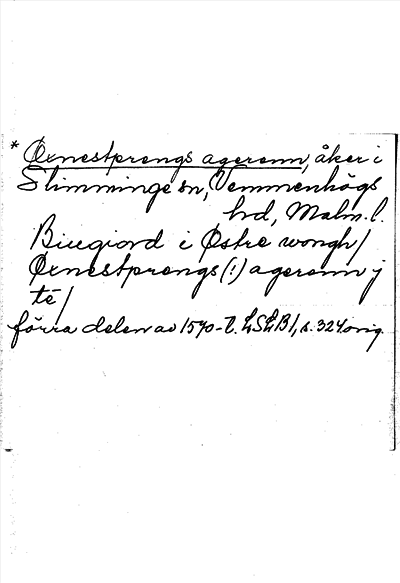 * Øxnestprengs agerenn, åker i
Slimminge sn, Vemmenhögs
hrd, Malm. l.
Biugiord i Østre wongh/
Øxnestprengs(!) agerenn j
té/
förra delen av 1570-t. LSLB1, s. 324 orig.